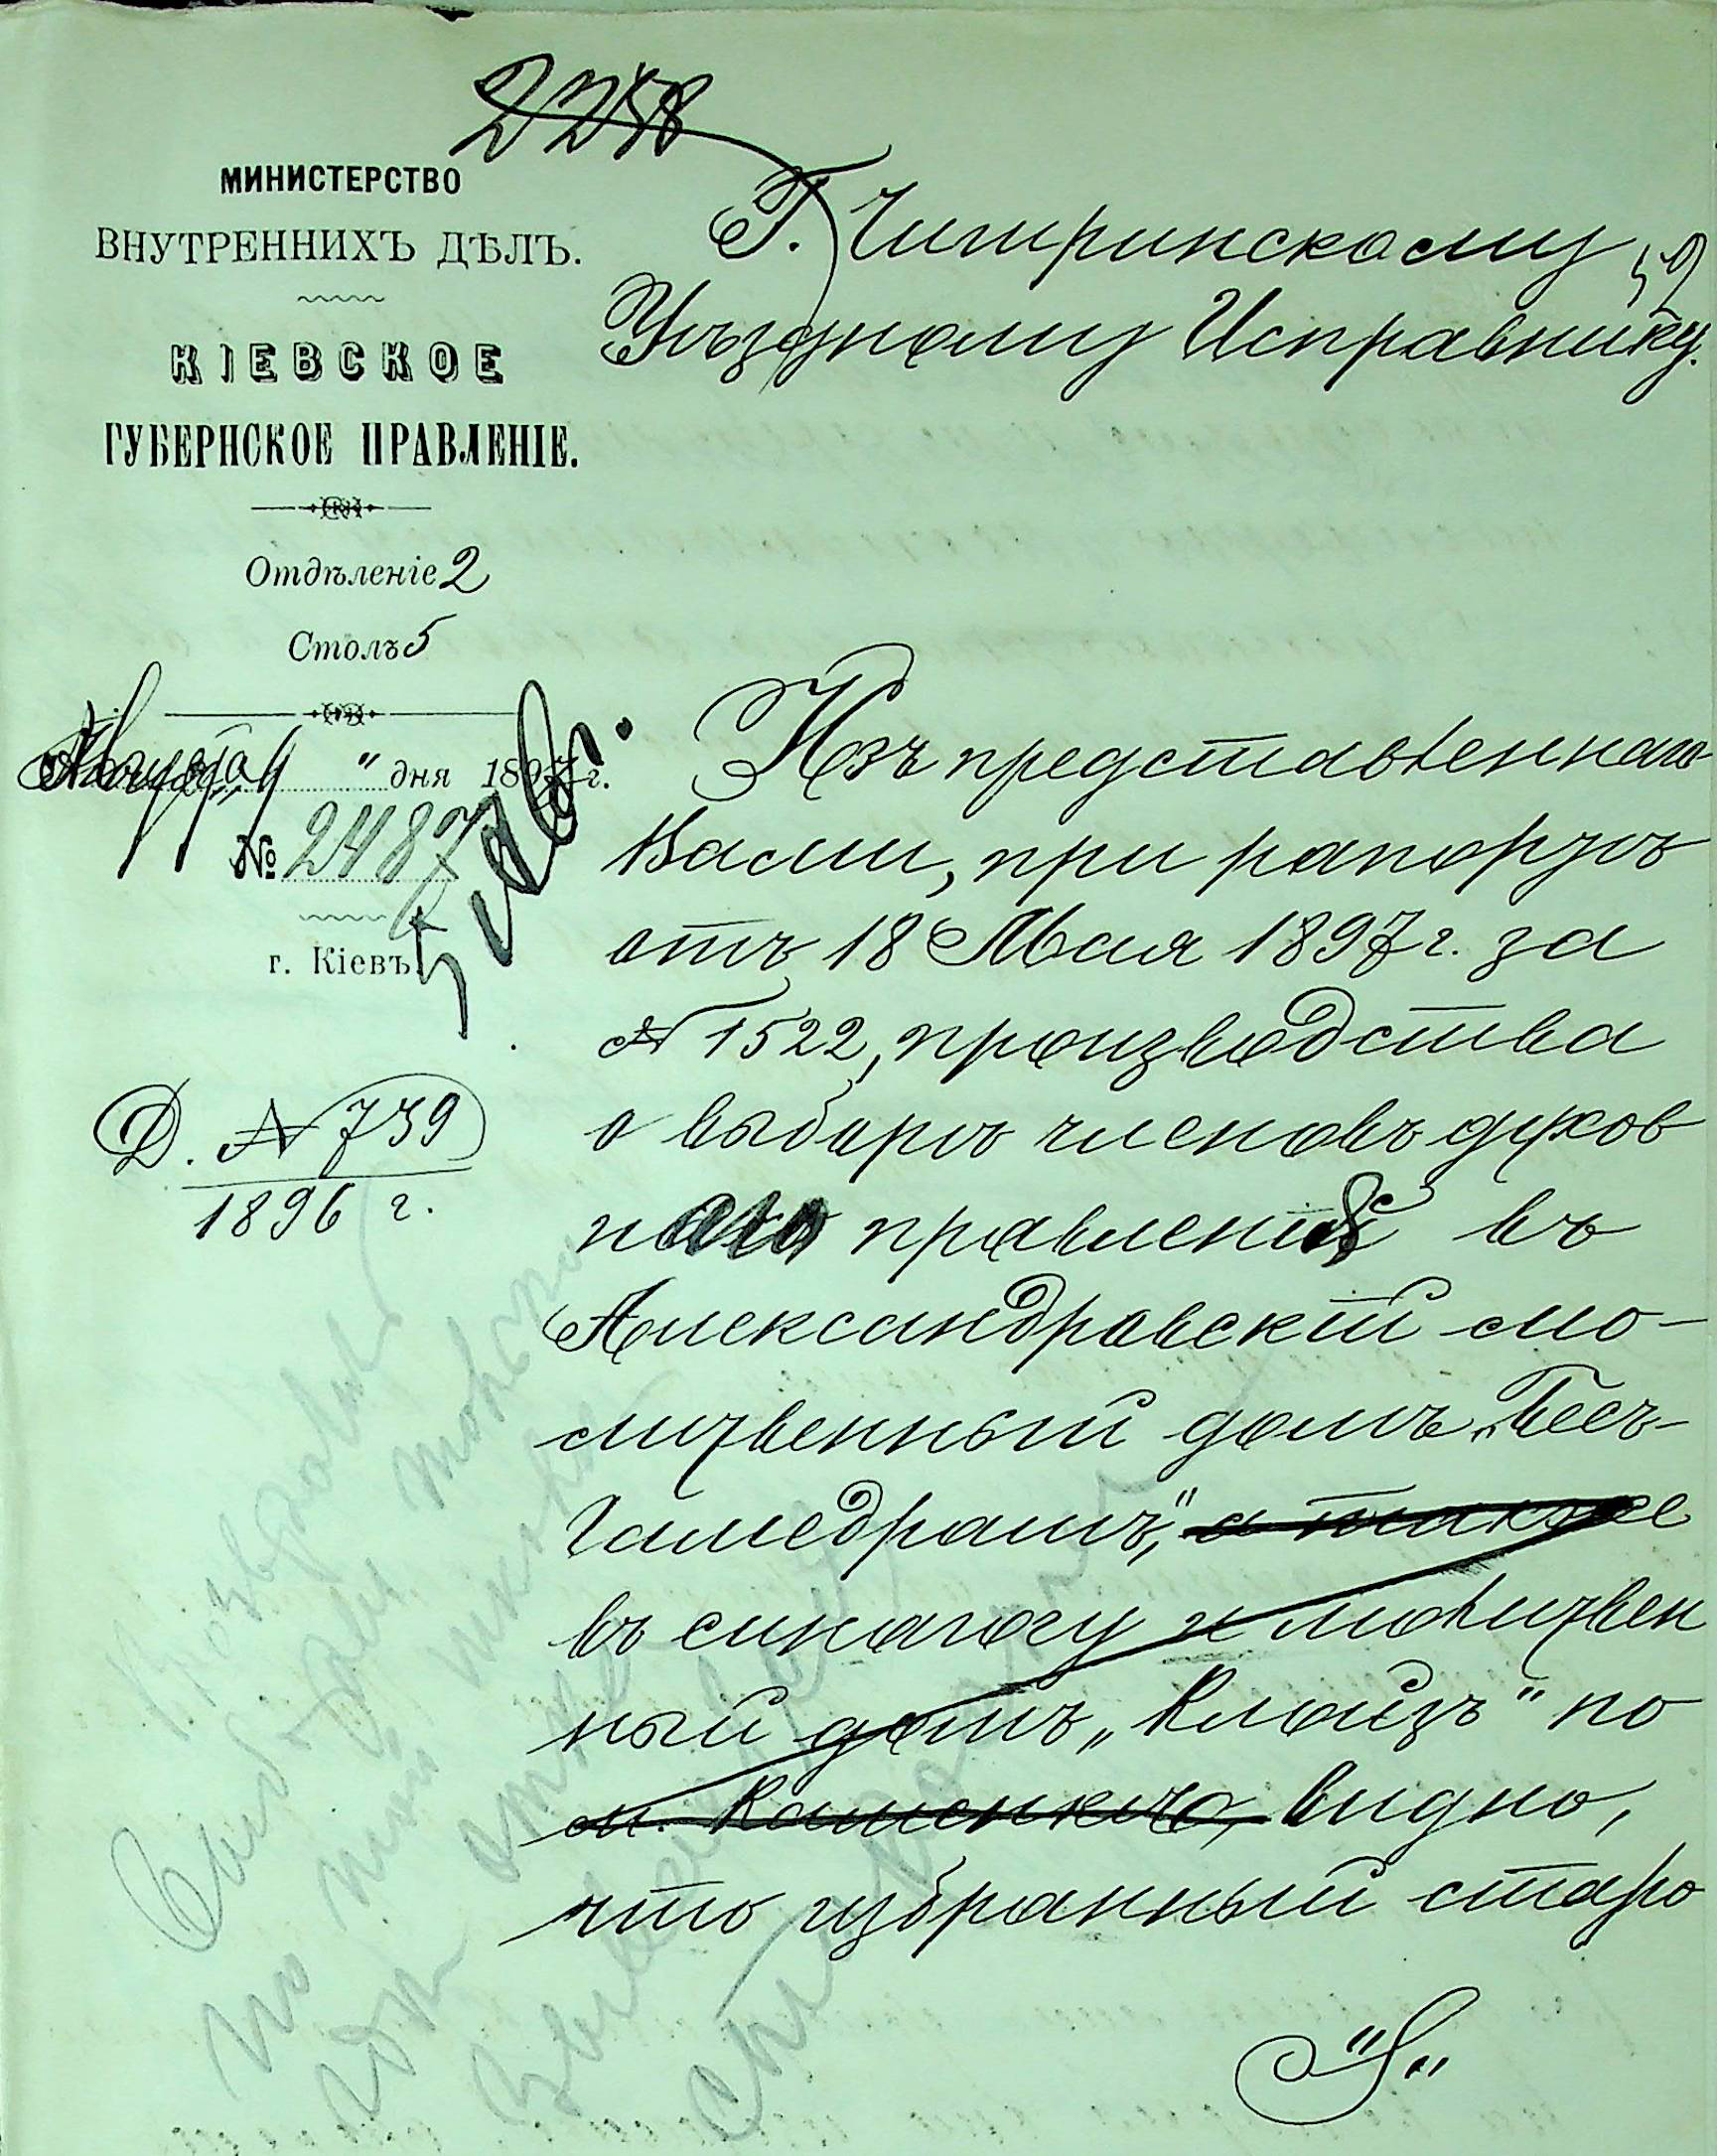 2258
МИНИСТЕРСТВО
ВНУТРЕННИХЪ ДѢЛЪ.
КІЕВСКОЕ
ГУБЕРНСКОЕ ПРАВЛЕНІЕ.
Отдѣленіе 2
Столъ 5
Августа 4 " дня 1897 г.
№ 2487
г. Кіевъ.
Д. № 739
1896 г.
Г. Чигиринскому
59
Уѣздному Исправнику.
Изъ представленнаго
Вами, при рапортѣ
отъ 18 Мая 1897 г. за
№ 1522, производства
о выборѣ членовъ духов
наго правленія въ
Александровскій мо-
литвенный домъ „Бесъ-
Гамедрашъ", а также
въ синагогу и молитвен
ный домъ „Клойзъ" по
м. Каменкѣ, видно,
что избранный старо